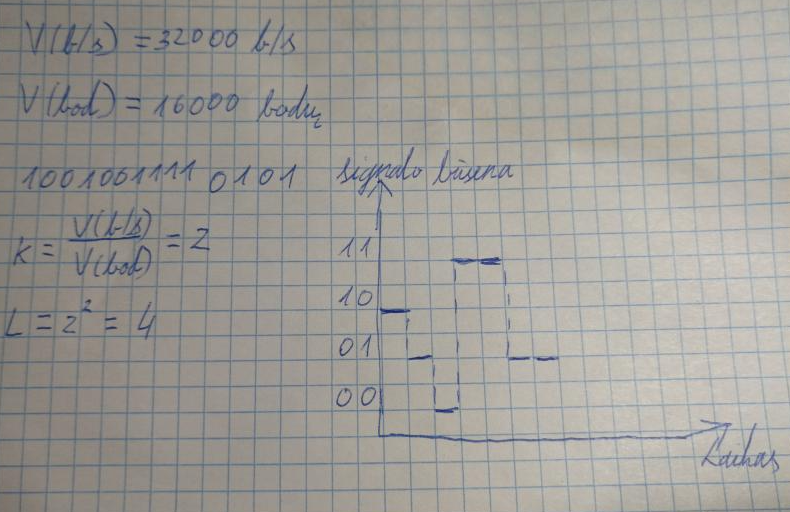 V(b/s) = 32000 b/s
V(bod) = 16000 bodų
10010011110101
K = V(b/s) / V(bod) = 2
L = 2² = 4
signalo būsena
11
10
01
00
Laikas